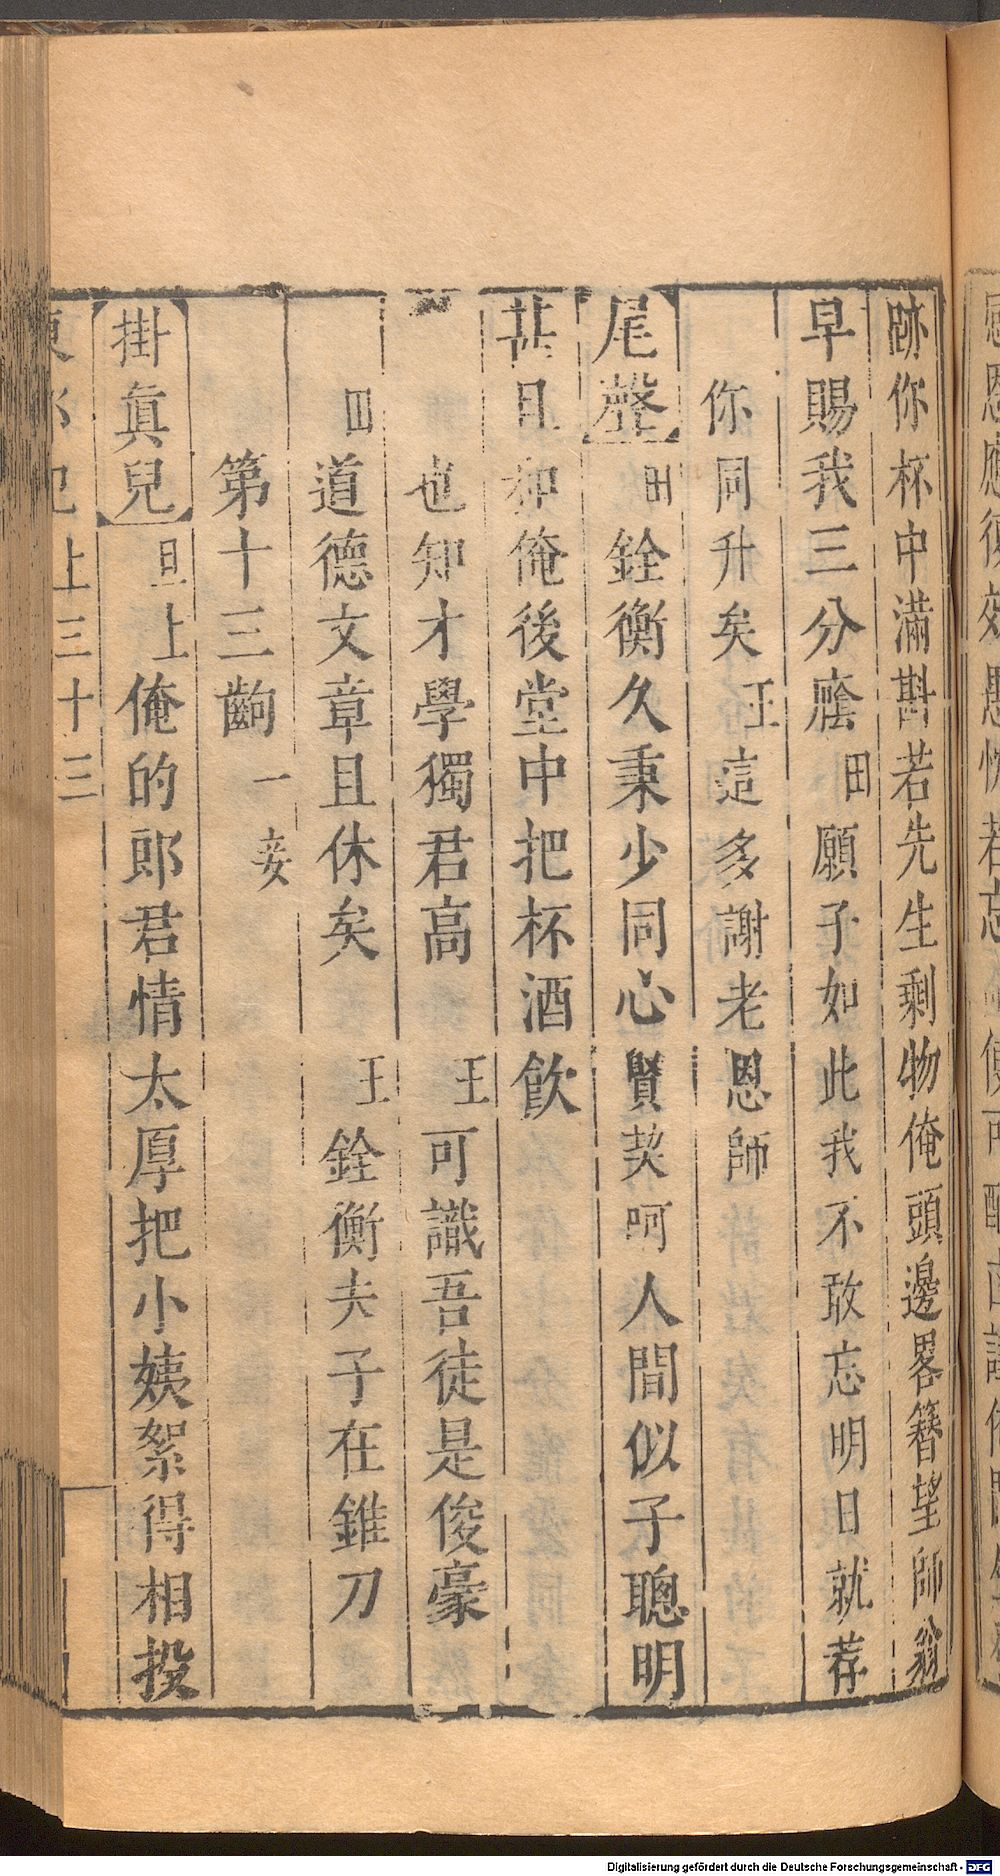 跡你杯中滿斟若先生剩物俺頭邊畧簪望師翁
早賜我三分廕田願子如此我不敢忘明日就荐
你同升矣王這多謝老恩師
尾聲田銓衡久秉少同心賢契呵人間似子聰明
甚且和俺後堂中把杯酒飲
也知才學獨君高王可識吾徒是俊豪
田道德文章且休矣王銓衡夫子在錐刀
第十三齣一妾
掛眞兒旦上俺的郎君情太厚把小姨絮得相投
上三十三
Digitalisierung gefördert durch die Deutsche Forschungsgemeinschaft - DFG